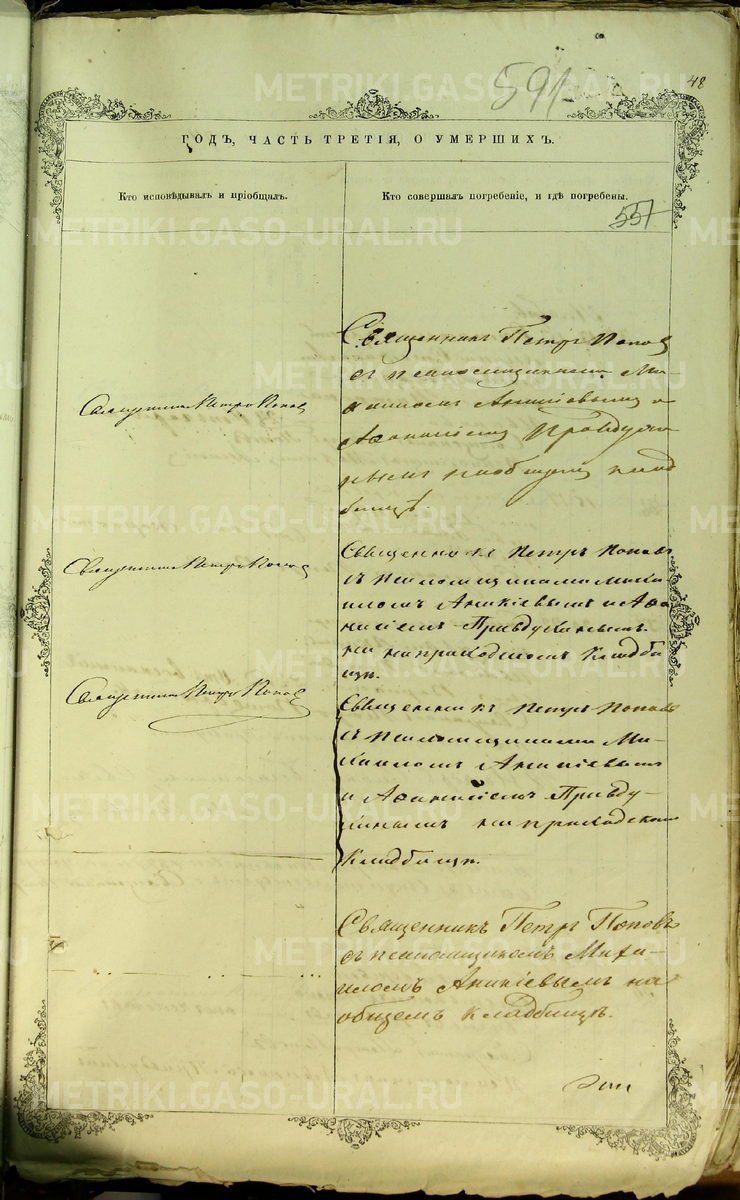 METRIKI.GASO-URAL.RU
591
48
ГОДЪ, ЧАСТЬ ТРЕТІЯ, О УМЕРШИХЪ.
Кто исповѣдывалъ и пріобщалъ.
Кто совершалъ погребеніе, и гдѣ погребены.
557
Священникъ Петръ Поповъ
съ псаломщиками Ми-
хаиломъ Аникіевымъ и
Аѳанасіемъ Правдухи-
нымъ на общемъ клад
бищѣ.
Священникъ Петръ Поповъ
Священникъ Петръ Поповъ
съ псаломщиками Миха
иломъ Аникіевымъ и Аѳа
насіемъ Правдухинымъ
на приходскомъ кладби
щѣ.
Священникъ Петръ Поповъ
Священникъ Петръ Поповъ
съ псаломщиками Ми-
хаиломъ Аникіевымъ
и Аѳанасіемъ Правду-
хинымъ на приходскомъ
кладбищѣ.
Священникъ Петръ Поповъ
Священникъ Петръ Поповъ
съ псаломщикомъ Миха-
иломъ Аникіевымъ на
общемъ кладбищѣ.